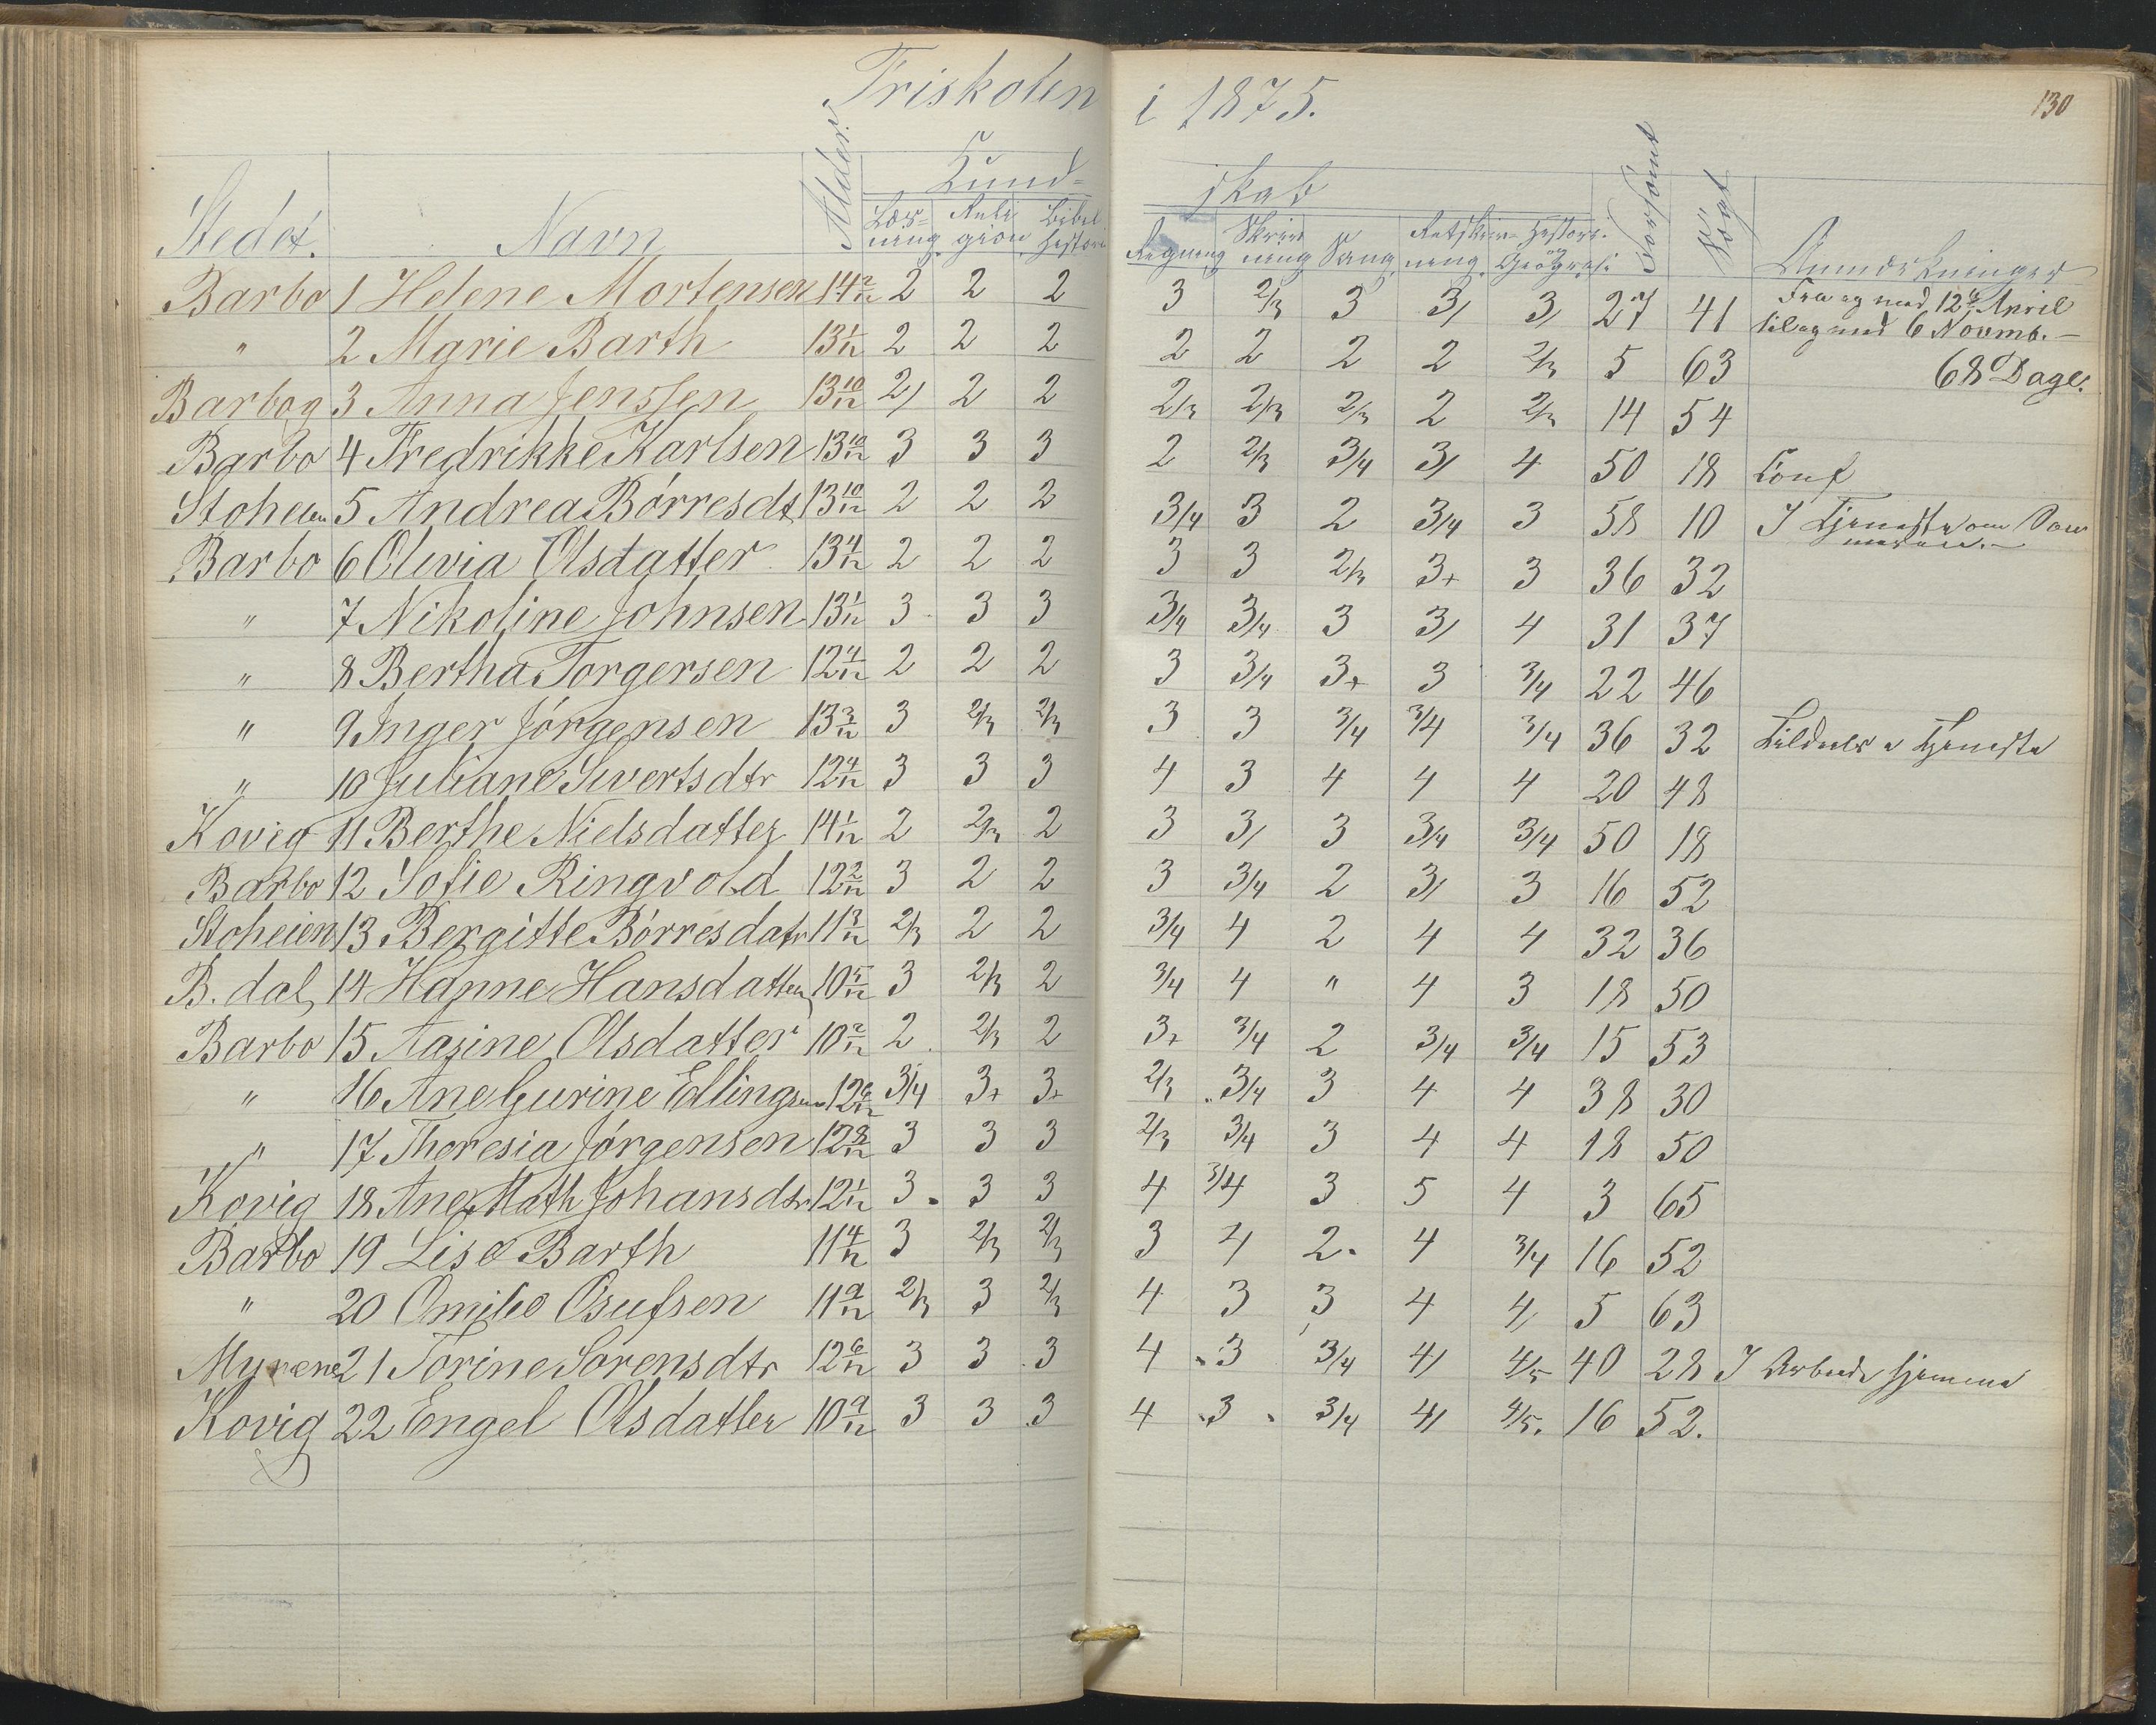 Friskolen i 1875. 130
Stedet. Navn Alder. Kund= skab Forsömt Sögt Anmærkninger
Læs= Reli Bibel Skriv Retskriv= Histori.
ning gion histori Regning ning Sang ning og Geografi
Barbo 1 Helene Mortensen 14 2/12 2 2 2 3 2/3 3 3/ 3/ 27 41 Fra og med 12te April
til og med 6 Novmb. –
" 2 Marie Barth 13 1/12 2 2 2 2 2 2 2 2/3 5 63 68 Dage.
Barbog 3 Anna Jenssen 13 10/12 2/ 2 2 2/3 2/3 2/3 2 2/3 14 54
Barbo 4 Fredrikke Karlsen 13 10/12 3 3 3 2 2/3 3/4 3/ 4 50 18 Conf
Stoheien 5 Andrea Börresdt 13 10/12 2 2 2 3/4 3 2 3/4 3 58 10 I Tjeneste om Som
meren. –
Barbo 6 Olivia Olsdatter 13 4/12 2 2 2 3 3 2/3 3+ 3 36 32
" 7 Nikoline Johnsen 13 1/12 3 3 3 3/4 3/4 3 3/ 4 31 37
" 8 Bertha Torgersen 12 4/12 2 2 2 3 3/4 3+ 3 3/4 22 46
" 9 Inger Jörgensen 13 3/12 3 2/3 2/3 3 3 3/4 3/4 3/4 36 32 Tildels i Tjeneste
" 10 Juliane Sivertsdtr 12 4/12 3 3 3 4 3 4 4 4 20 48
Kovig 11 Berthe Nielsdatter 14 1/12 2 2/3 2 3 3/ 3 3/4 3/4 50 18
Barbo 12 Sofie Ringvold 12 2/12 3 2 2 3 3/4 2 3/ 3 16 52
Stoheien 13 Bergitte Börresdatr 11 3/12 2/3 2 2 3/4 4 2 4 4 32 36
B. dal, 14 Hanne Hansdatter 10 5/12 3 2/3 2 3/4 4 " 4 3 18 50
Barbo 15 Aasine Olsdatter 10 2/12 2 2/3 2 3+ 3/4 2 3/4 3/4 15 53
" 16 Ane Gurine Ellingsen 12 6/12 3/4 3+ 3+ 2/3 3/4 3 4 4 38 30
" 17 Theresia Jörgensen 12 8/12 3 3 3 2/3 3/4 3 4 4 18 50
Kovig 18 Ane Math Johansdtr 12 1/12 3 3 3 4 3/4 3 5 4 3 65
Barbo 19 Lise Barth 11 4/12 3 2/3 2/3 3 4 2. 4 3/4 16 52
" 20 Omilie Osufsen 11 9/12 2/3 3 2/3 4 3 3 4 4/ 5 63
Myrene 21 Torine Sorensdtr 12 6/12 3 3 3 4 3 3/4 4/ 4/5 40 28 I Arbeide hjemme
Kovig 22 Engel Olsdatter 10 9/12 3 3 3 4 3 3/4 4/ 4/5. 16 52.